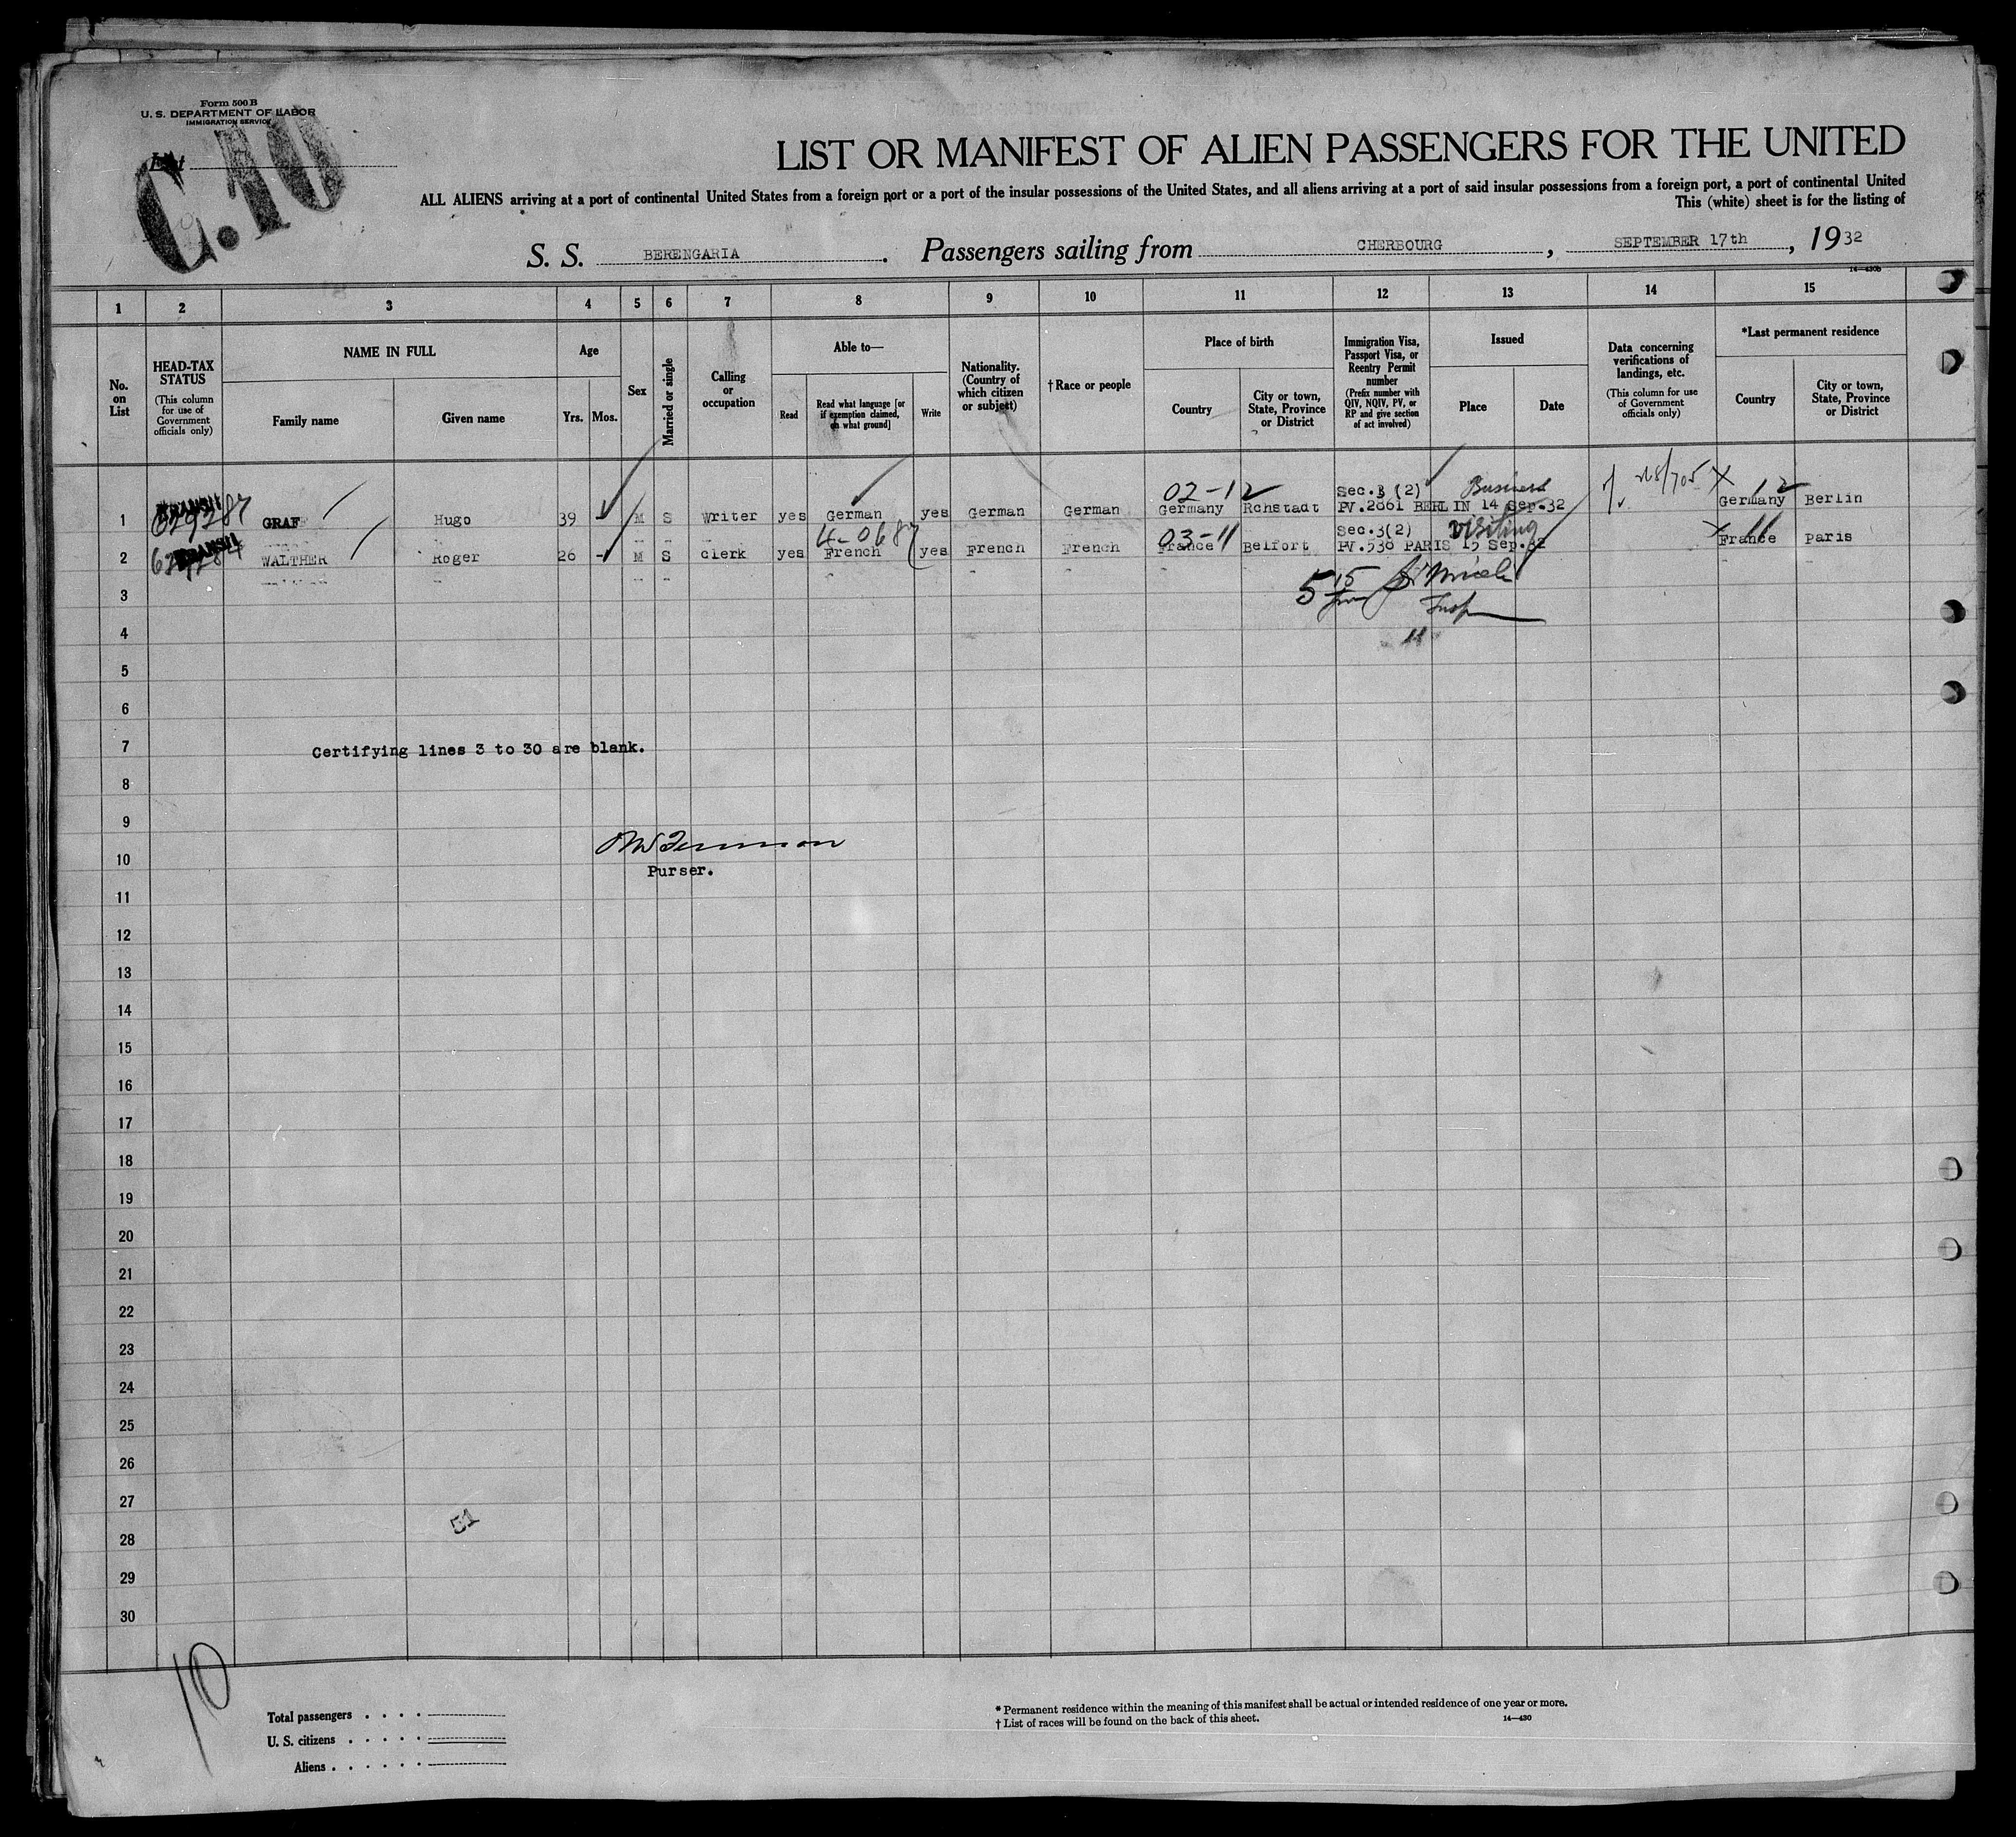 Form 500 B
U. S. DEPARTMENT OF LABOR
IMMIGRATION SERVICE
List
C.10
LIST OR MANIFEST OF ALIEN PASSENGERS FOR THE UNITED
ALL ALIENS arriving at a port of continental United States from a foreign port or a port of the insular possessions of the United States, and all aliens arriving at a port of said insular possessions from a foreign port, a port of continental United
This (white) sheet is for the listing of
S. S. BERENGARIA. Passengers sailing from CHERBOURG, SEPTEMBER 17th, 1932
14—430b
1 2 3 4 5 6 7 8 9 10 11 12 13 14 15
No. on List
HEAD-TAX STATUS (This column for use of Government officials only)
NAME IN FULL
Family name
Given name
Age
Yrs. Mos.
Sex
Married or single
Calling or occupation
Able to—
Read
Read what language [or if exemption claimed, on what ground]
Write
Nationality. (Country of which citizen or subject)
† Race or people
Place of birth
Country
City or town, State, Province or District
Immigration Visa, Passport Visa, or Reentry Permit number (Prefix number with QIV, NQIV, PV, or RP and give section of act involved)
Issued
Place
Date
Data concerning verifications of landings, etc. (This column for use of Government officials only)
*Last permanent residence
Country
City or town, State, Province or District
02-12 Sec.3 (2) Business 12
1 TRANSIT GRAF Hugo 39 - M S Writer yes German yes German German Germany Rohstadt PV.2861 BERLIN 14 Sep.32 Germany Berlin
4-0687 03-11 Sec.3(2) Visiting 11
2 TRANSIT WALTHER Roger 26 - M S clerk yes French yes French French France Belfort PV.538 PARIS 15 Sep.32 France Paris
3
5 15
Insp
4
11
5
6
7 Certifying lines 3 to 30 are blank.
8
9
10
Purser.
11
12
13
14
15
16
17
18
19
20
21
22
23
24
25
26
27
51
28
29
30
10
Total passengers
U. S. citizens
Aliens
* Permanent residence within the meaning of this manifest shall be actual or intended residence of one year or more.
† List of races will be found on the back of this sheet.
14—430